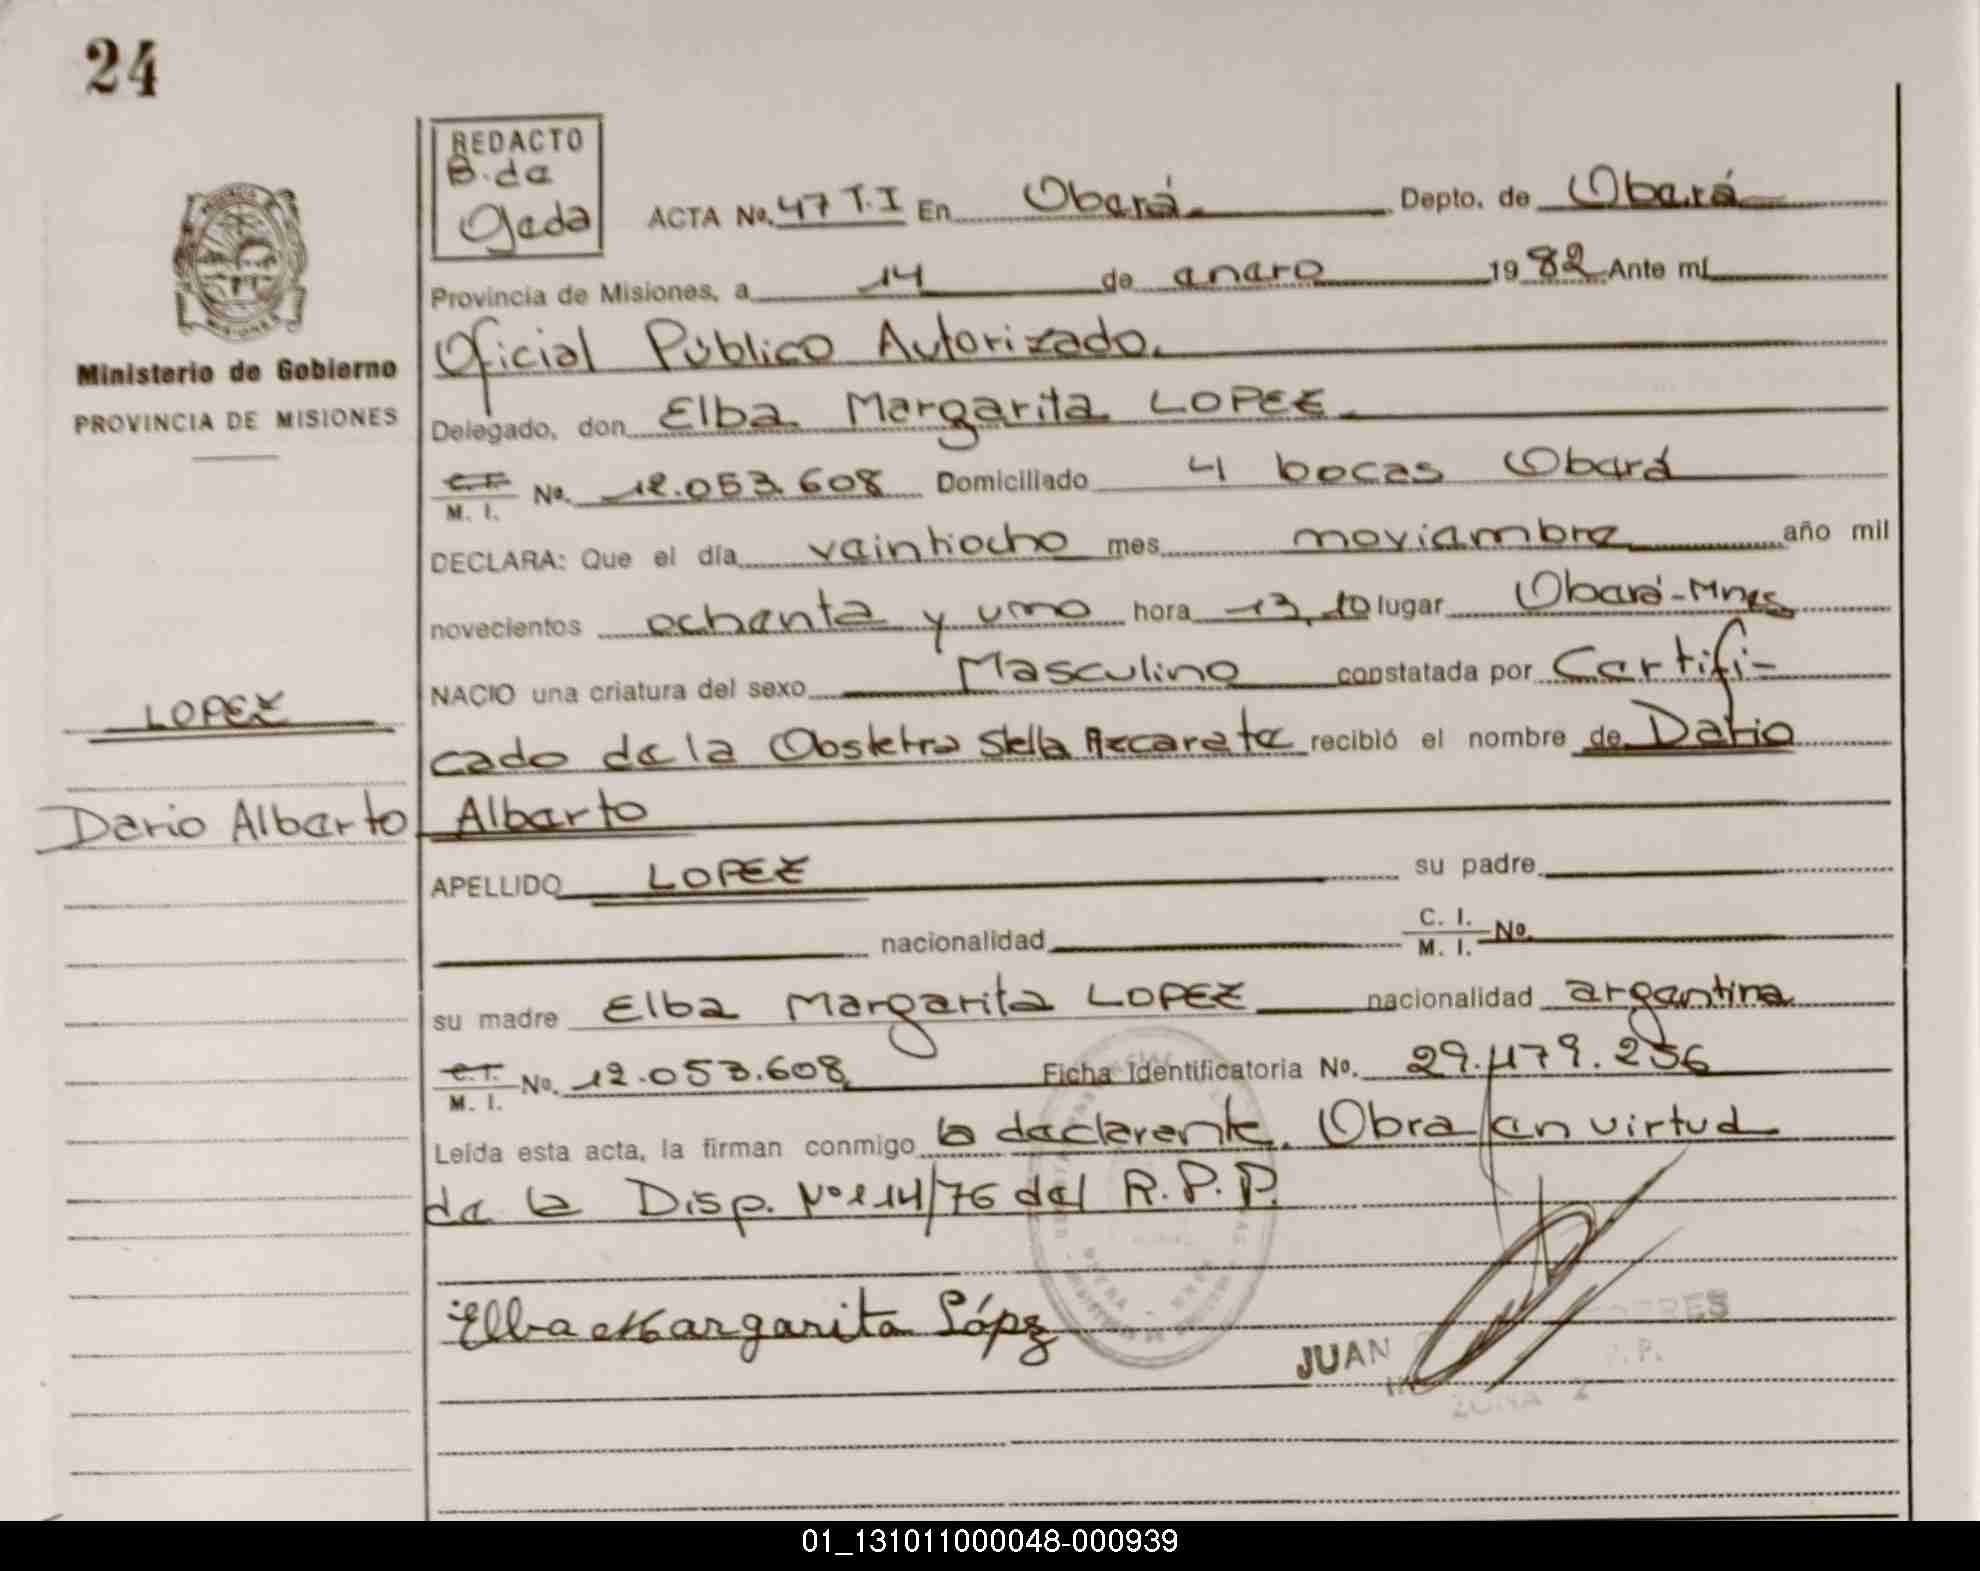 24
REDACTO
B. de
Gada
ACTA No. 47 T.I En Oberá Depto. de Oberá
Provincia de Misiones, a 14 de enero 1982 Ante mí
Oficial Público Autorizado.
Ministerio de Gobierno
PROVINCIA DE MISIONES
Delegado, don Elba Margarita LOPEZ
C.I. M. I. No. 12.053.608 Domiciliado 4 bocas Oberá
DECLARA: Que el día veintiocho mes noviembre año mil
novecientos ochenta y uno hora 13,10 lugar Oberá-Mnes
NACIO una criatura del sexo Masculino constatada por Certifi-
LOPEZ
cado de la Obstetra Stella Azcarate recibió el nombre de Dario
Dario Alberto
Alberto
APELLIDO LOPEZ su padre
nacionalidad C. I. M. I. No.
su madre Elba Margarita LOPEZ nacionalidad argentina
C.I. M. I. No. 12.053.608 Ficha Identificatoria No. 29.479.256
Leída esta acta, la firman conmigo la declarente. Obra en virtud
de la Disp. Nº 114/76 del R.P.P.
Elba Margarita López
JUAN
ZONA 2
01_131011000048-000939